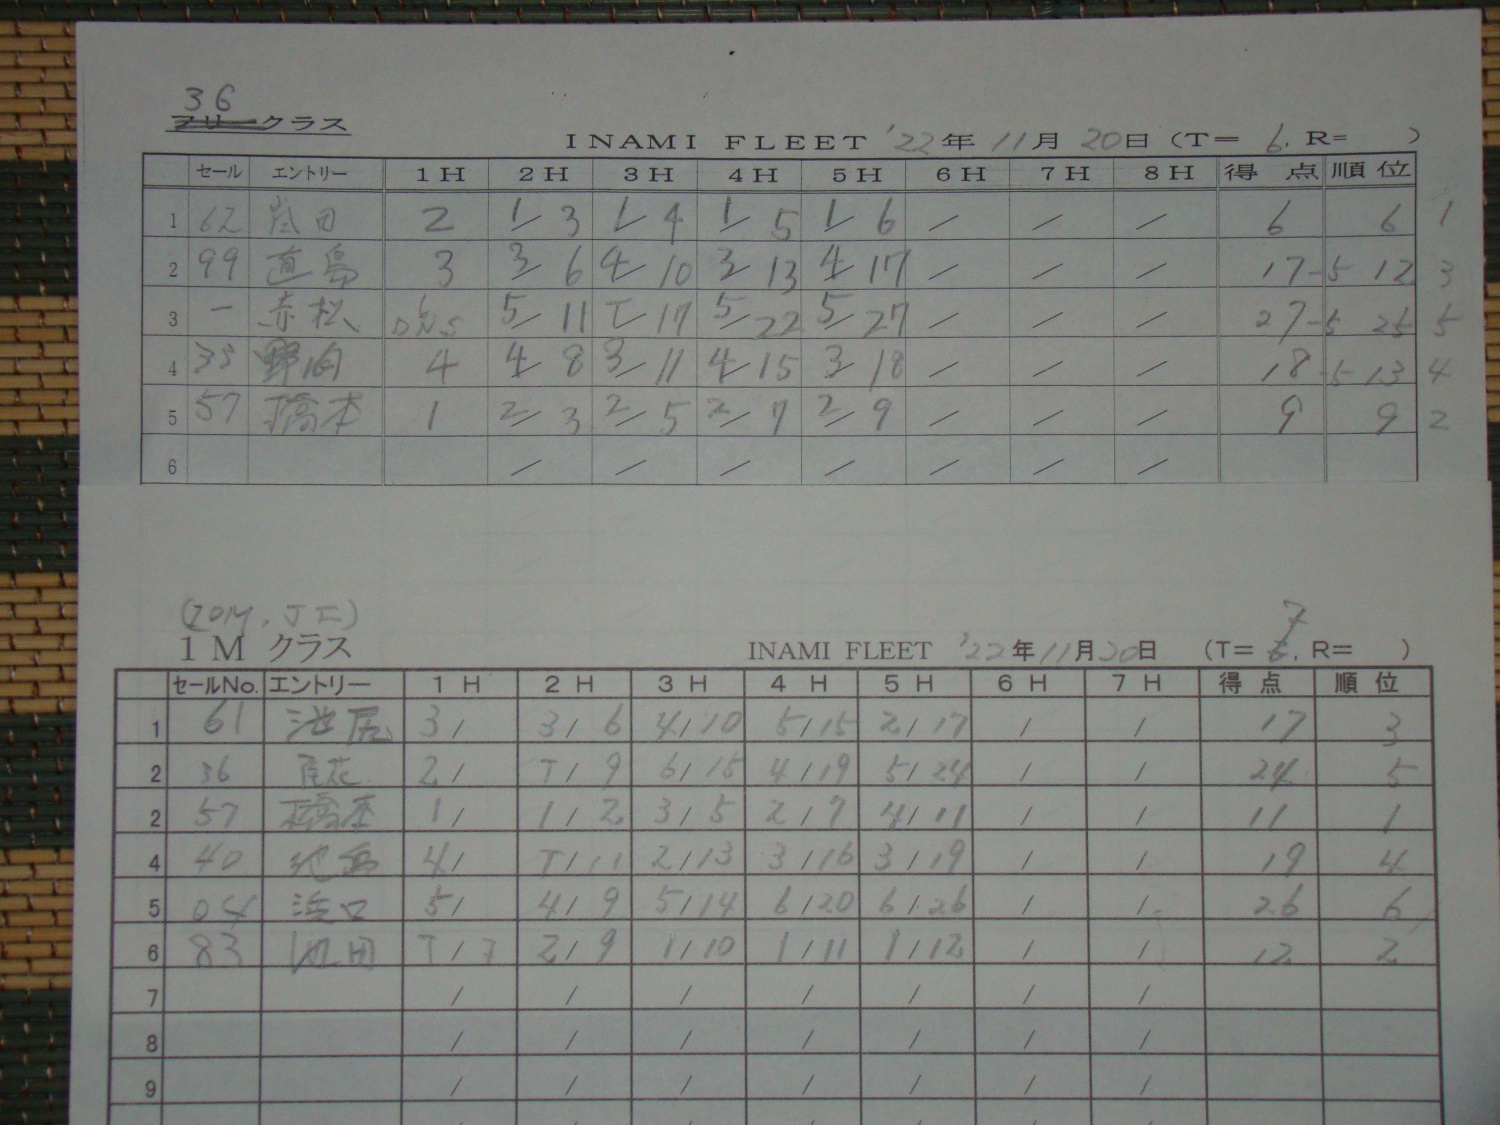 36
フリークラス
INAMI FLEET '22年 11月 20日 (T= 6, R= )
セール エントリー 1H 2H 3H 4H 5H 6H 7H 8H 得 点 順 位
1 62 田 2 1/3 1/4 1/5 1/6 / / / 6 6 1
2 99 直島 3 3/6 4/10 3/13 4/17 / / / 17-5 12 3
3 ー 赤松 6 DNS 5/11 T/17 5/22 5/27 / / / 27-5 5
4 野向 4 4/8 3/11 4/15 3/18 / / / 18-5 13 4
5 57 橋本 1 2/3 2/5 2/7 2/9 / / / 9 9 2
6 / / / / / / /
(IOM, JF)
1M クラス INAMI FLEET '22年11月20日 (T= 7, R= )
セールNo. エントリー 1H 2H 3H 4H 5H 6H 7H 得 点 順 位
1 61 池尻 3/ 3/6 4/10 5/15 2/17 / / 17 3
2 36 尾花 2/ T/9 6/15 4/19 5/24 / / 24 5
2 57 橋本 1/ 1/2 3/5 2/7 4/11 / / 11 1
4 40 4/ T/11 2/13 3/16 3/19 / / 19 4
5 04 浜口 5/ 4/9 5/14 6/20 6/26 / / 26 6
6 83 池田 T/7 2/9 1/10 1/11 1/12 / / 12 2
7 / / / / / / /
8 / / / / / / /
9 / / / / / / /